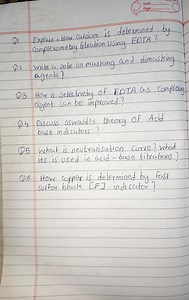 Q1 Explain how calcium is determined by
complexometry titration using EDTA?
Q2 write a note on masking and demasking
agents?
Q3 How is selectivity of EDTA as complexing
agent can be improved?
Q4 Discuss oswald's theory of Acid
base indicators!
Q5 what is neutralisation curve? what
its is used in acid-base titrations?
Q6 How copper is determined by fast
sulfon black [F] indicator?